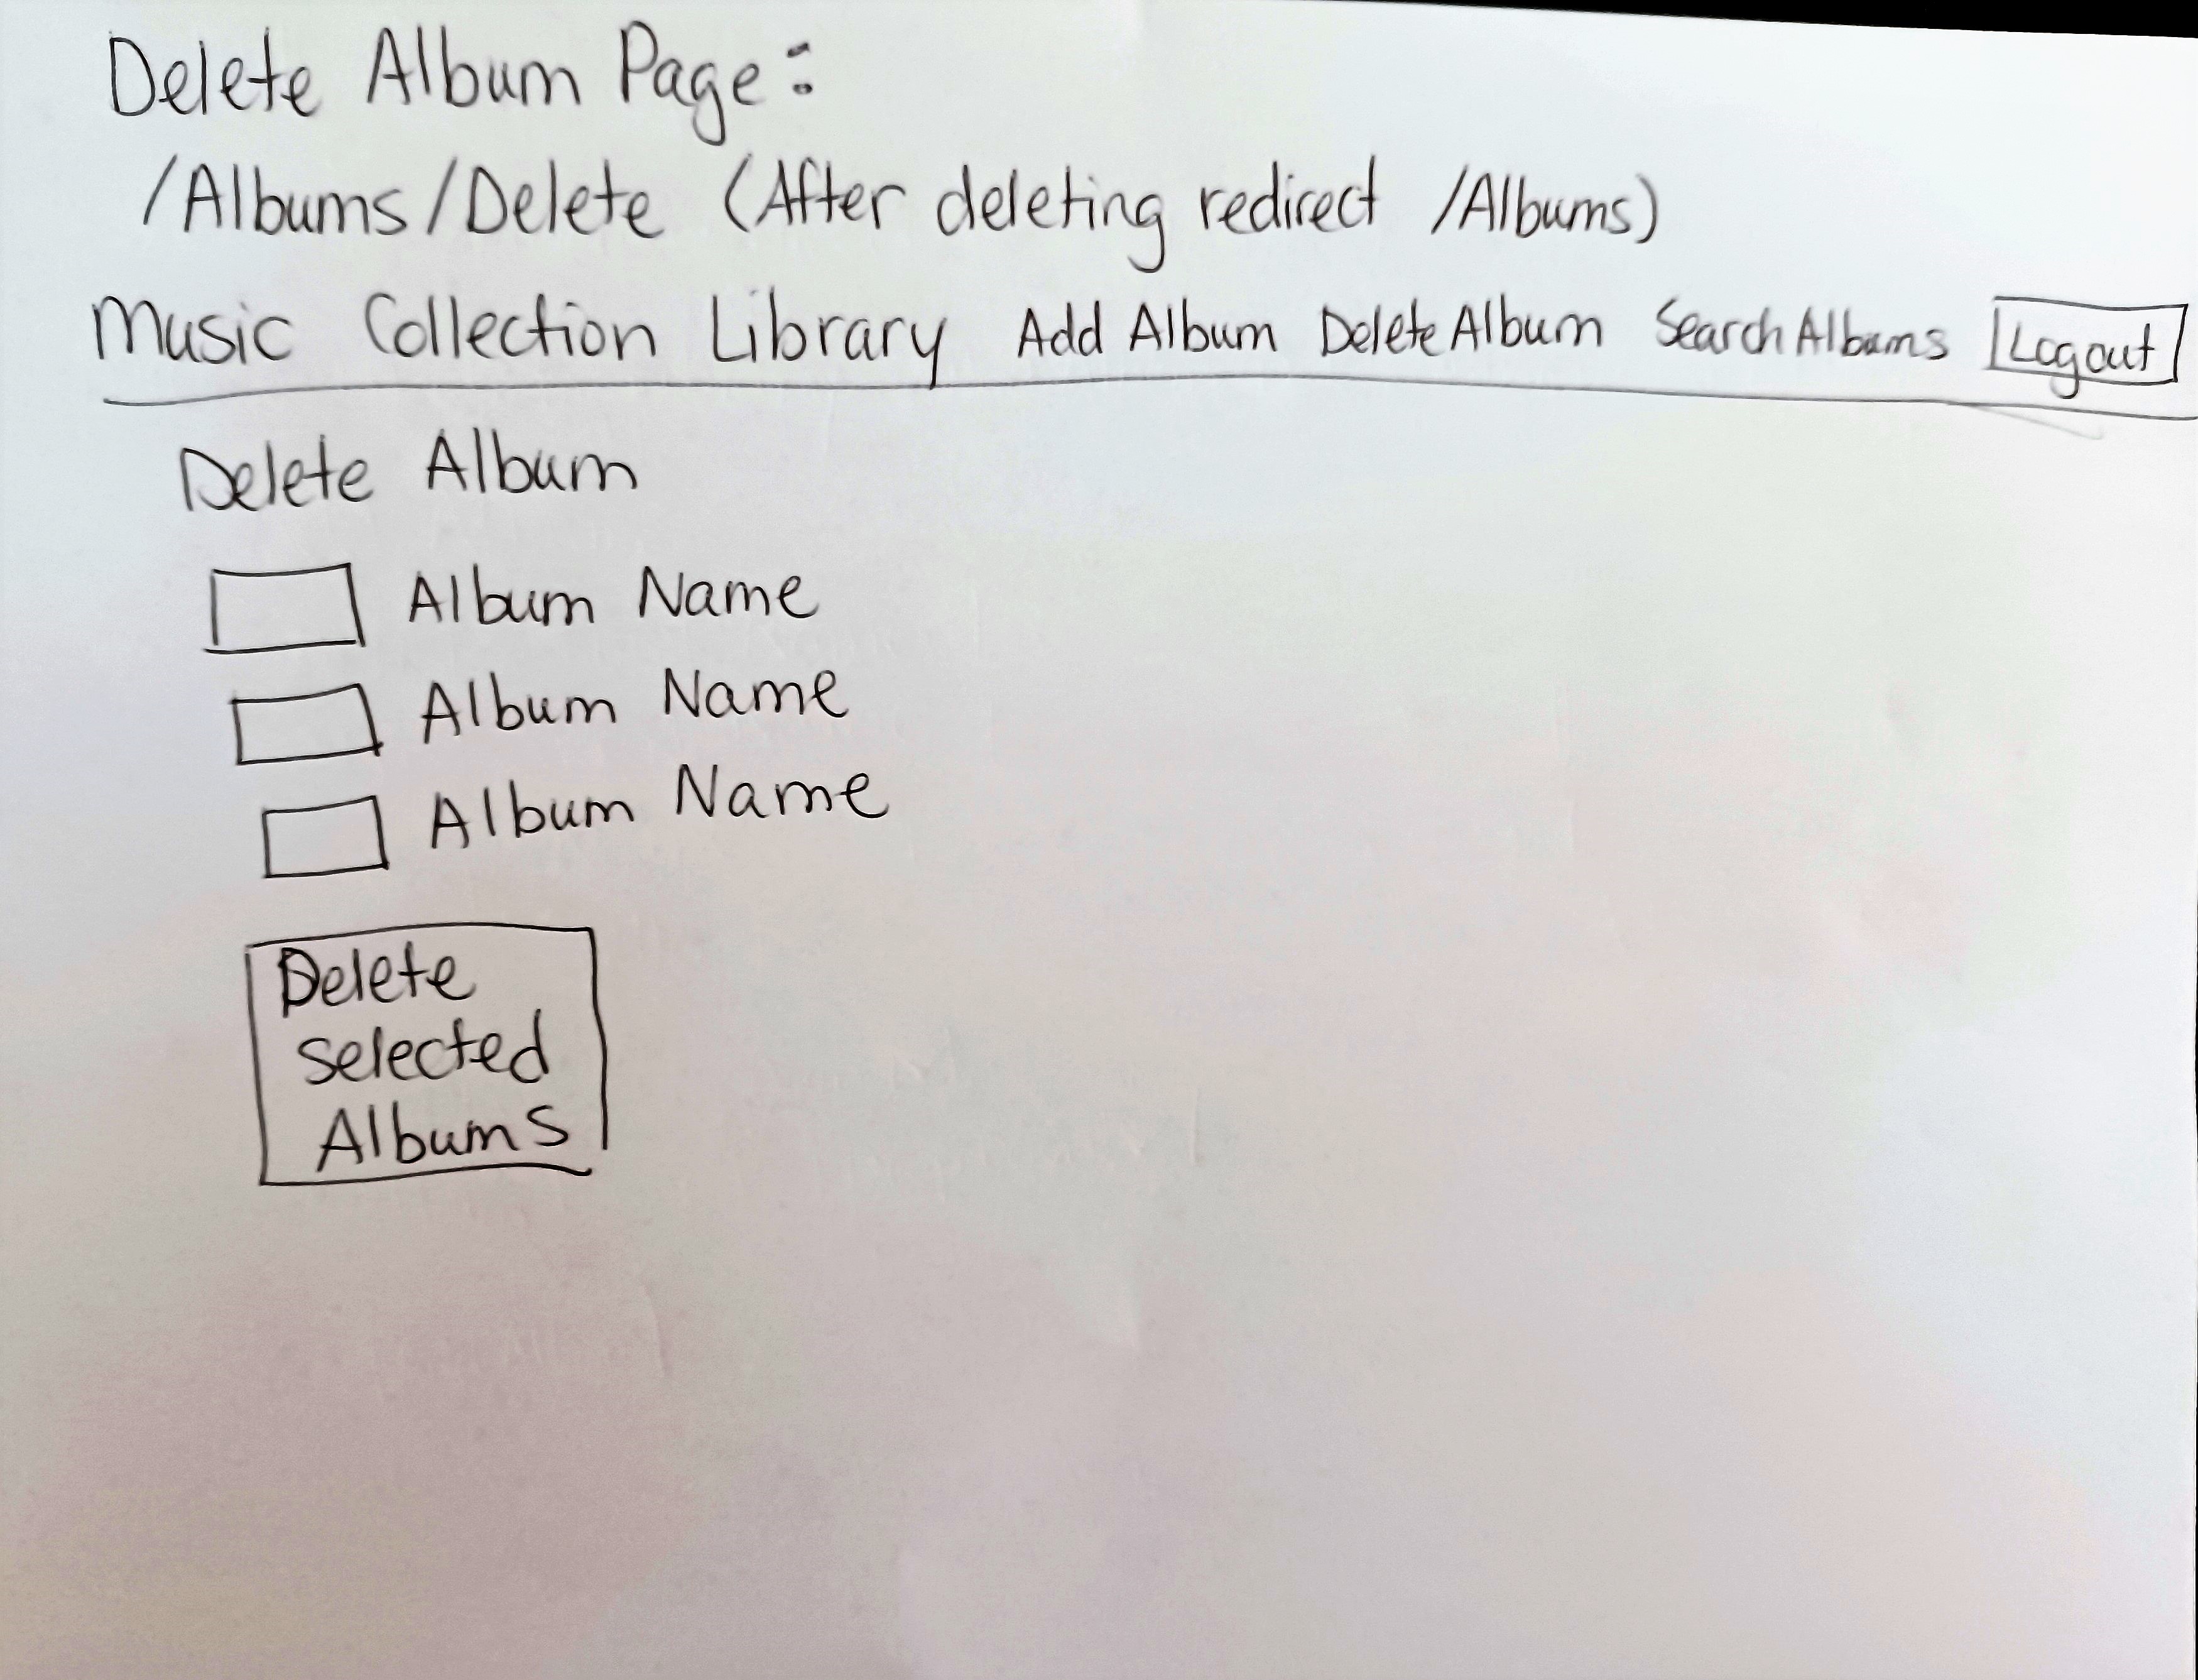 Delete Album Page:
/Albums/Delete (After deleting redirect /Albums)
Music Collection Library Add Album Delete Album Search Albums Logout
Delete Album
Album Name
Album Name
Album Name
Delete
selected
Albums